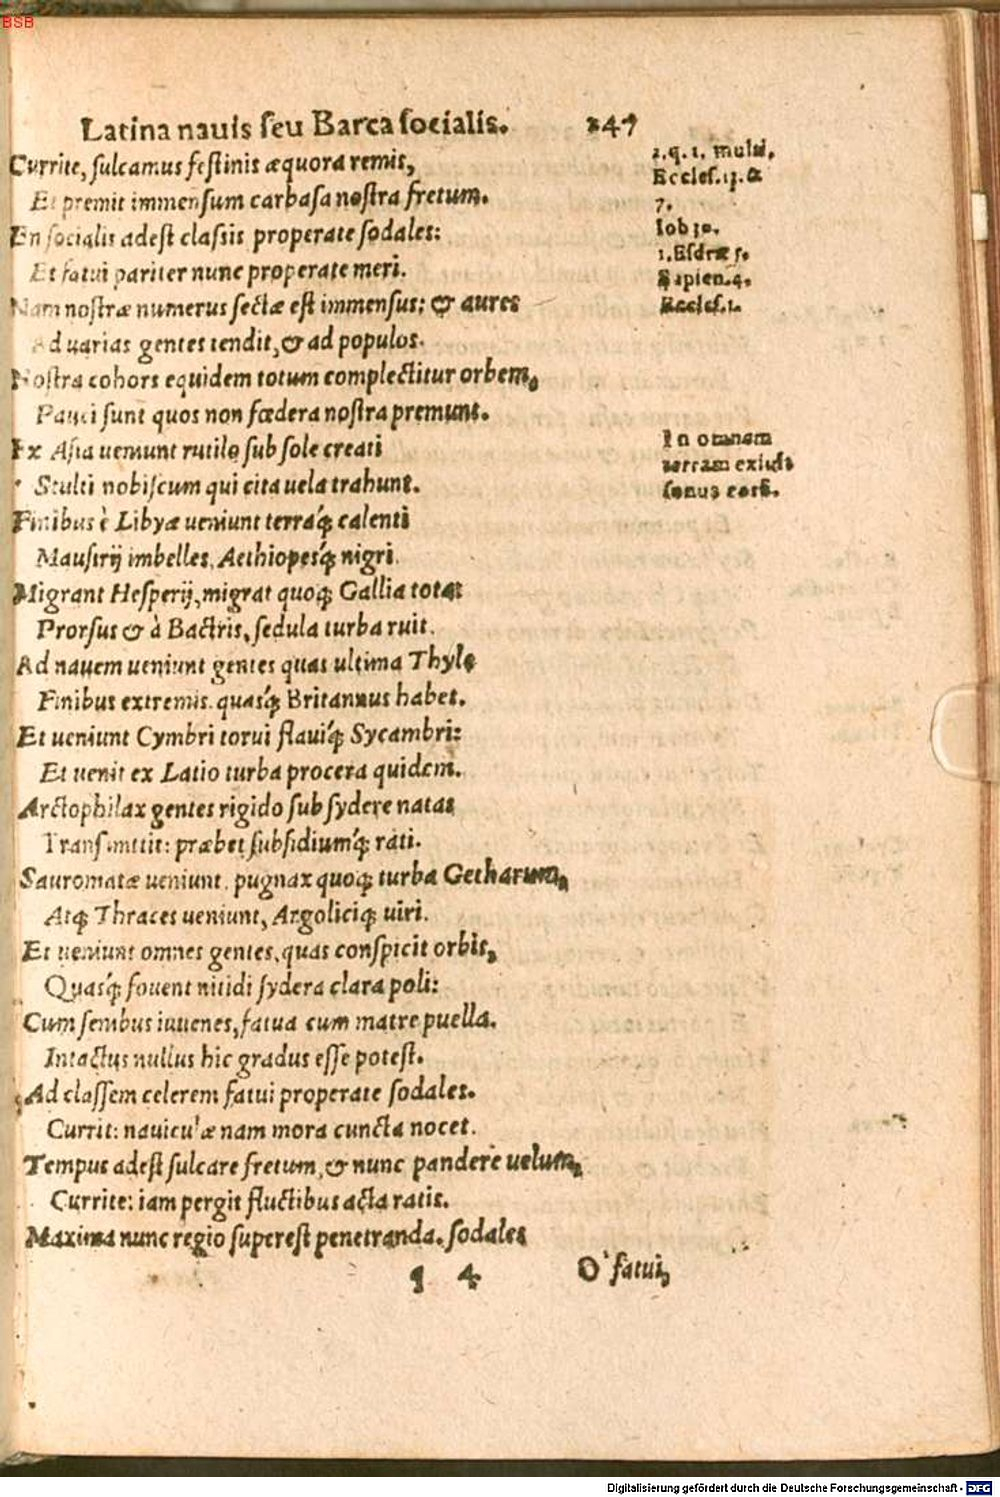 BSB
Latina nauis seu Barca socialis. 247
Currite, sulcamus festinis æquora remis,
Et premit immensum carbasa nostra fretum.
En socialis adest classis properate sodales:
Et fatui pariter nunc properate meri.
Nam nostræ numerus sectæ est immensus: & aures
Ad uarias gentes tendit, & ad populos.
Nostra cohors equidem totum complectitur orbem,
Pauci sunt quos non fœdera nostra premunt.
Ex Asia ueniunt rutilo sub sole creati
Stulti nobiscum qui cita uela trahunt.
Finibus è Libyæ ueniunt terraq́; calenti
Maustrij imbelles, Aethiopesq́; nigri.
Migrant Hesperij, migrat quoq; Gallia tota:
Prorsus & à Bactris, sedula turba ruit.
Ad nauem ueniunt gentes quas ultima Thyle
Finibus extremis, quasq́; Britannus habet.
Et ueniunt Cymbri torui flauiq́; Sycambri:
Et uenit ex Latio turba procera quidem.
Arctophilax gentes rigido sub sydere natas
Transmittit: præbet subsidiumq́; rati.
Sauromatæ ueniunt, pugnax quoq; turba Getharum,
Atq; Thraces ueniunt, Argoliciq; uiri.
Et ueniunt omnes gentes, quas conspicit orbis,
Quasq́; fouent nitidi sydera clara poli:
Cum senibus iuuenes, fatua cum matre puella.
Intactus nullus hic gradus esse potest.
Ad classem celerem fatui properate sodales.
Currit: nauiculæ nam mora cuncta nocet.
Tempus adest sulcare fretum, & nunc pandere uelum,
Currite: iam pergit fluctibus acta ratis.
Maxima nunc regio superest penetranda. sodales
q 4 O fatui,
2. q. 1. multi.
Eccles. 13. &
7.
Iob 30.
1. Esdræ 5.
Sapien. 4.
Eccles. 1.
In omnem
terram exiuit
sonus eorū.
Digitalisierung gefördert durch die Deutsche Forschungsgemeinschaft - DFG